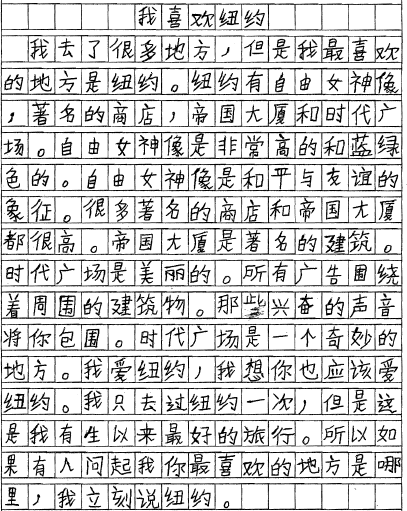 我喜欢纽约
我去了很多地方，但是我最喜欢
的地方是纽约。纽约有自由女神像
，著名的商店，帝国大厦和时代广
场。自由女神像是非常高的和蓝绿
色的。自由女神像是和平与友谊的
象征。很多著名的商店和帝国大厦
都很高。帝国大厦是著名的建筑。
时代广场是美丽的。所有广告围绕
着周围的建筑物。那些兴奋的声音
将你包围。时代广场是一个奇妙的
地方。我爱纽约，我想你也应该爱
纽约。我只去过纽约一次，但是这
是我有生以来最好的旅行。所以如
果有人问起我你最喜欢的地方是哪
里，我立刻说纽约。